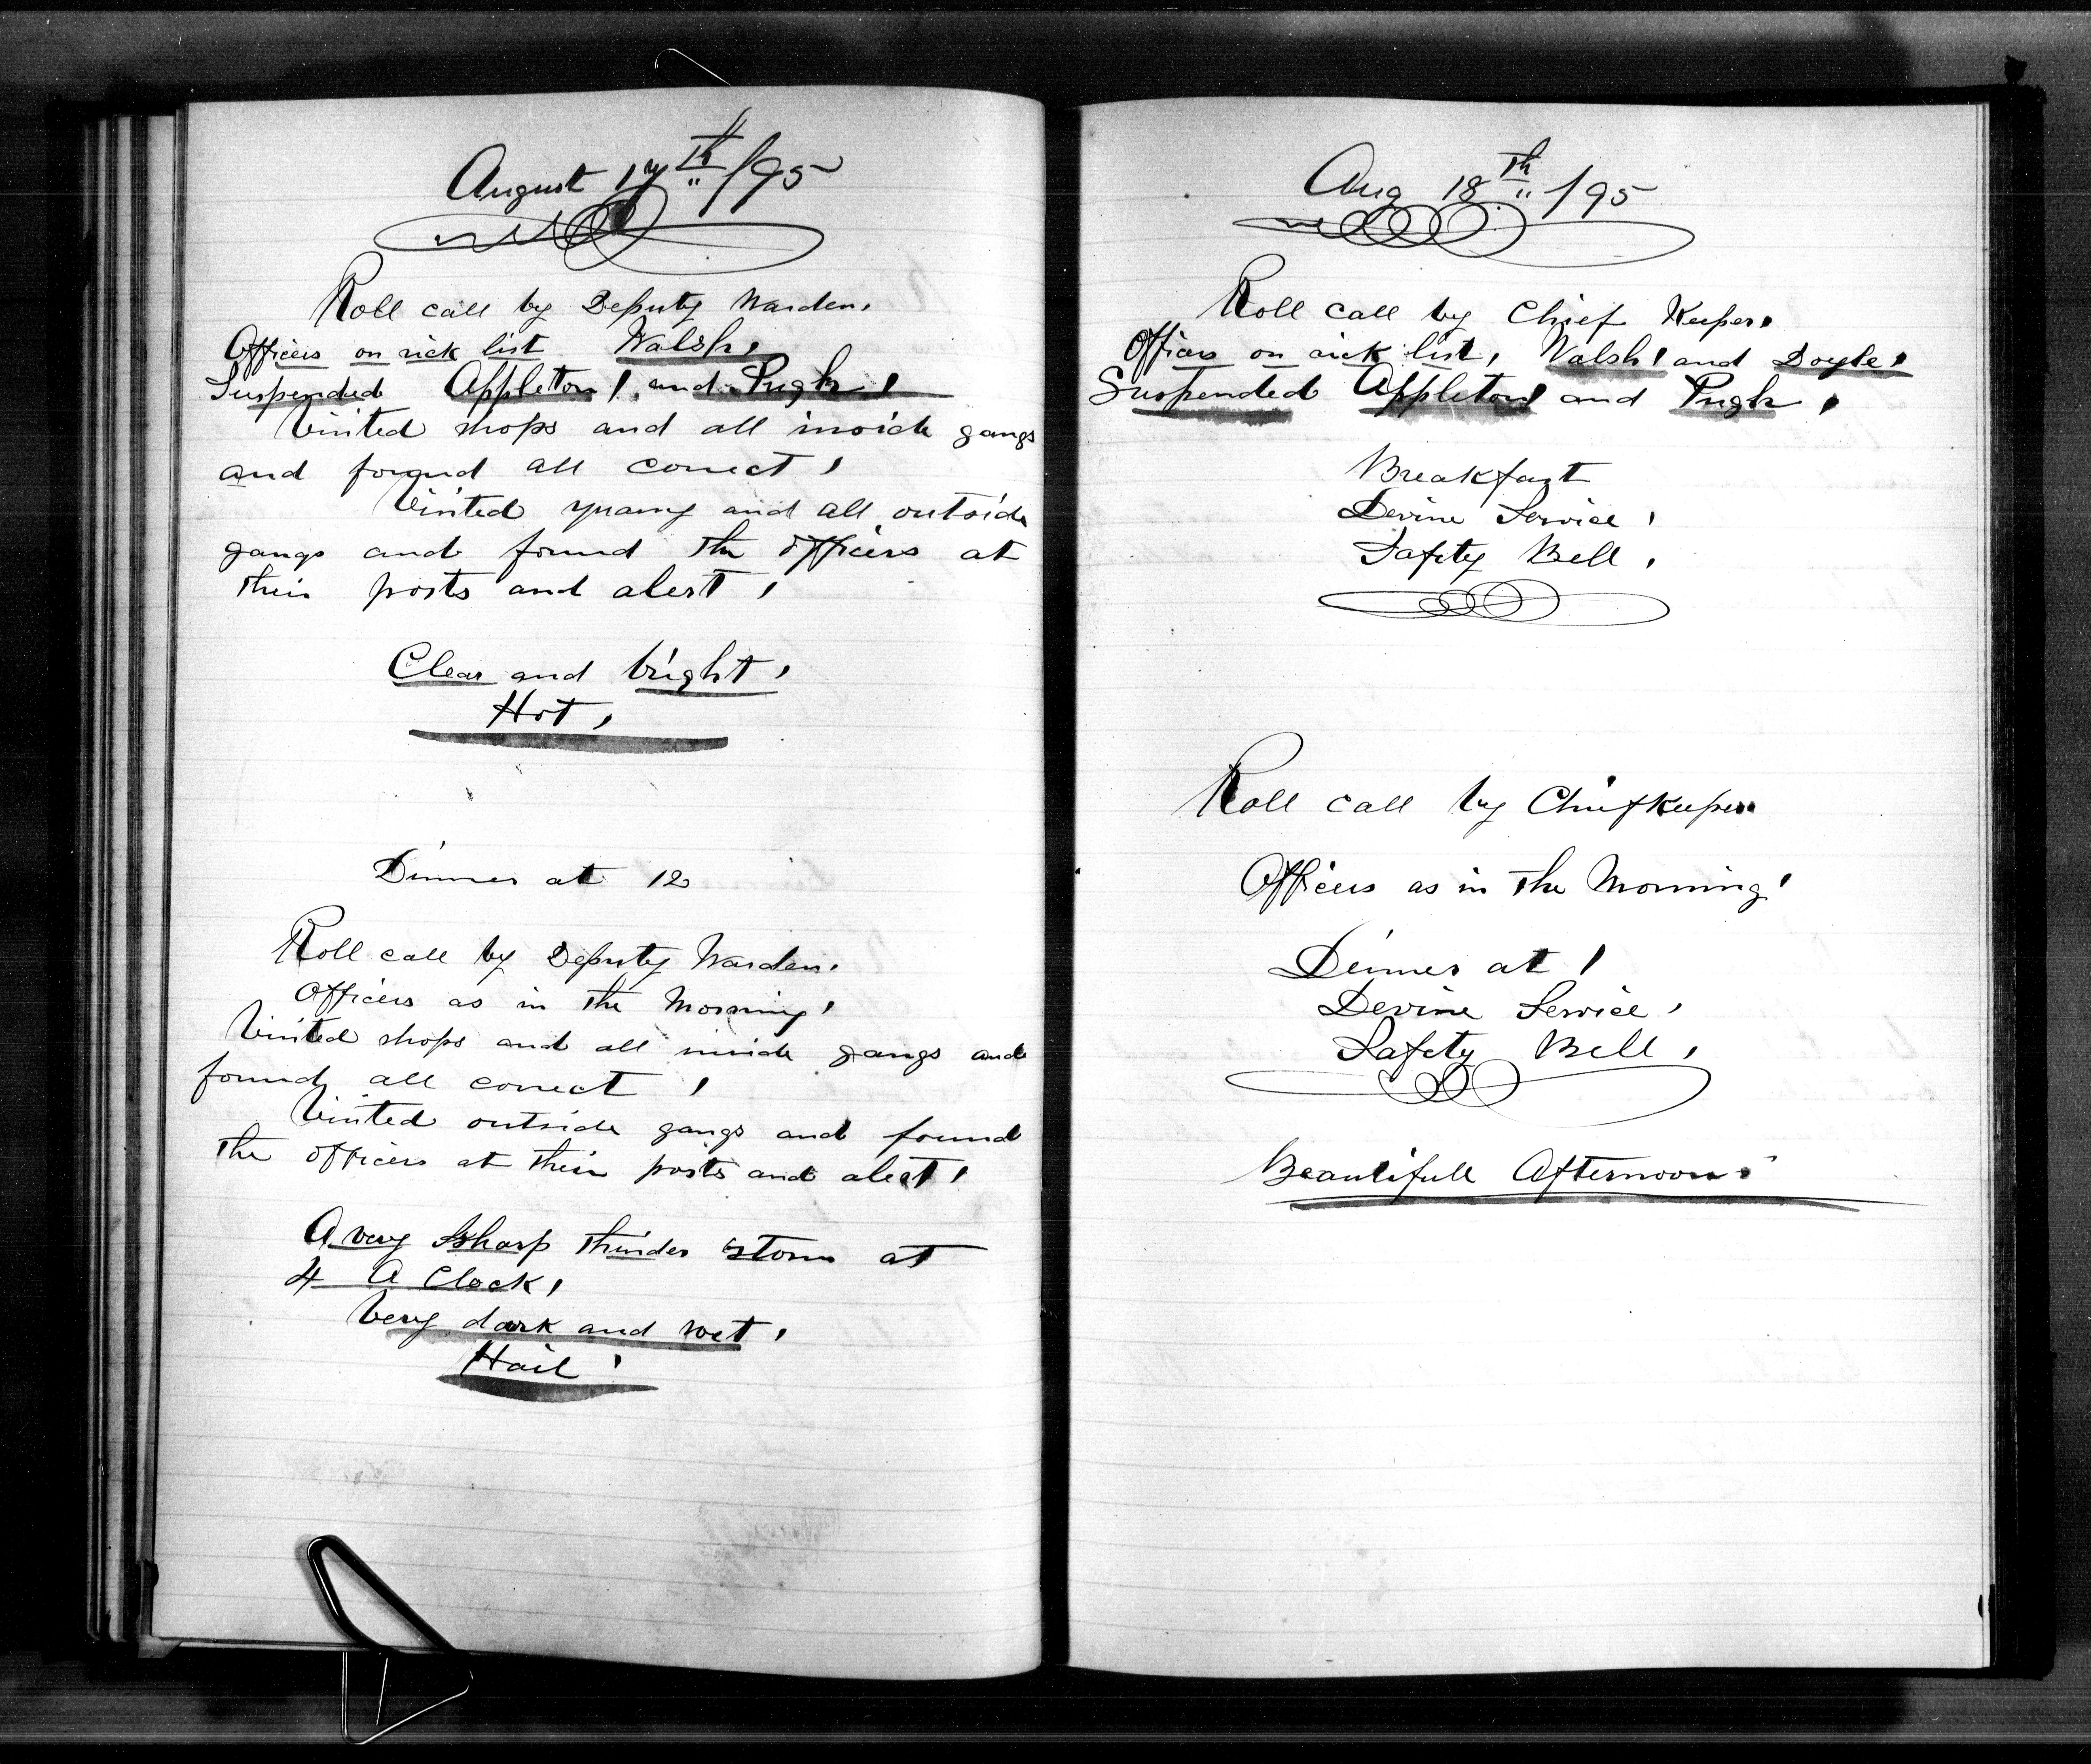 August 17th /95
Roll call by Deputy Warden.
Officers on sick list Walsh,
Suspended Appleton, and Pugh,
Visited shops and all inside gangs
and found all correct,
Visited quarry and all outside
gangs and found the officers at
their posts and alert,
Clear and bright,
Hot,
Dinner at 12
Roll call by Deputy Warden.
Officers as in the Morning,
Visited shops and all inside gangs and
found all correct,
Visited outside gangs and found
the officers at their posts and alert,
A very sharp thunder storm at
4 A Clock,
Very dark and wet,
Hail,
Aug 18th /95
Roll call by Chief Keeper,
Officers on sick list, Walsh, and Doyle,
Suspended Appleton and Pugh,
Breakfast
Devine Service,
Safety Bell,
Roll call by Chief Keeper
Officers as in the Morning,
Dinner at 1
Devine Service,
Safety Bell,
Beautifull Afternoon.